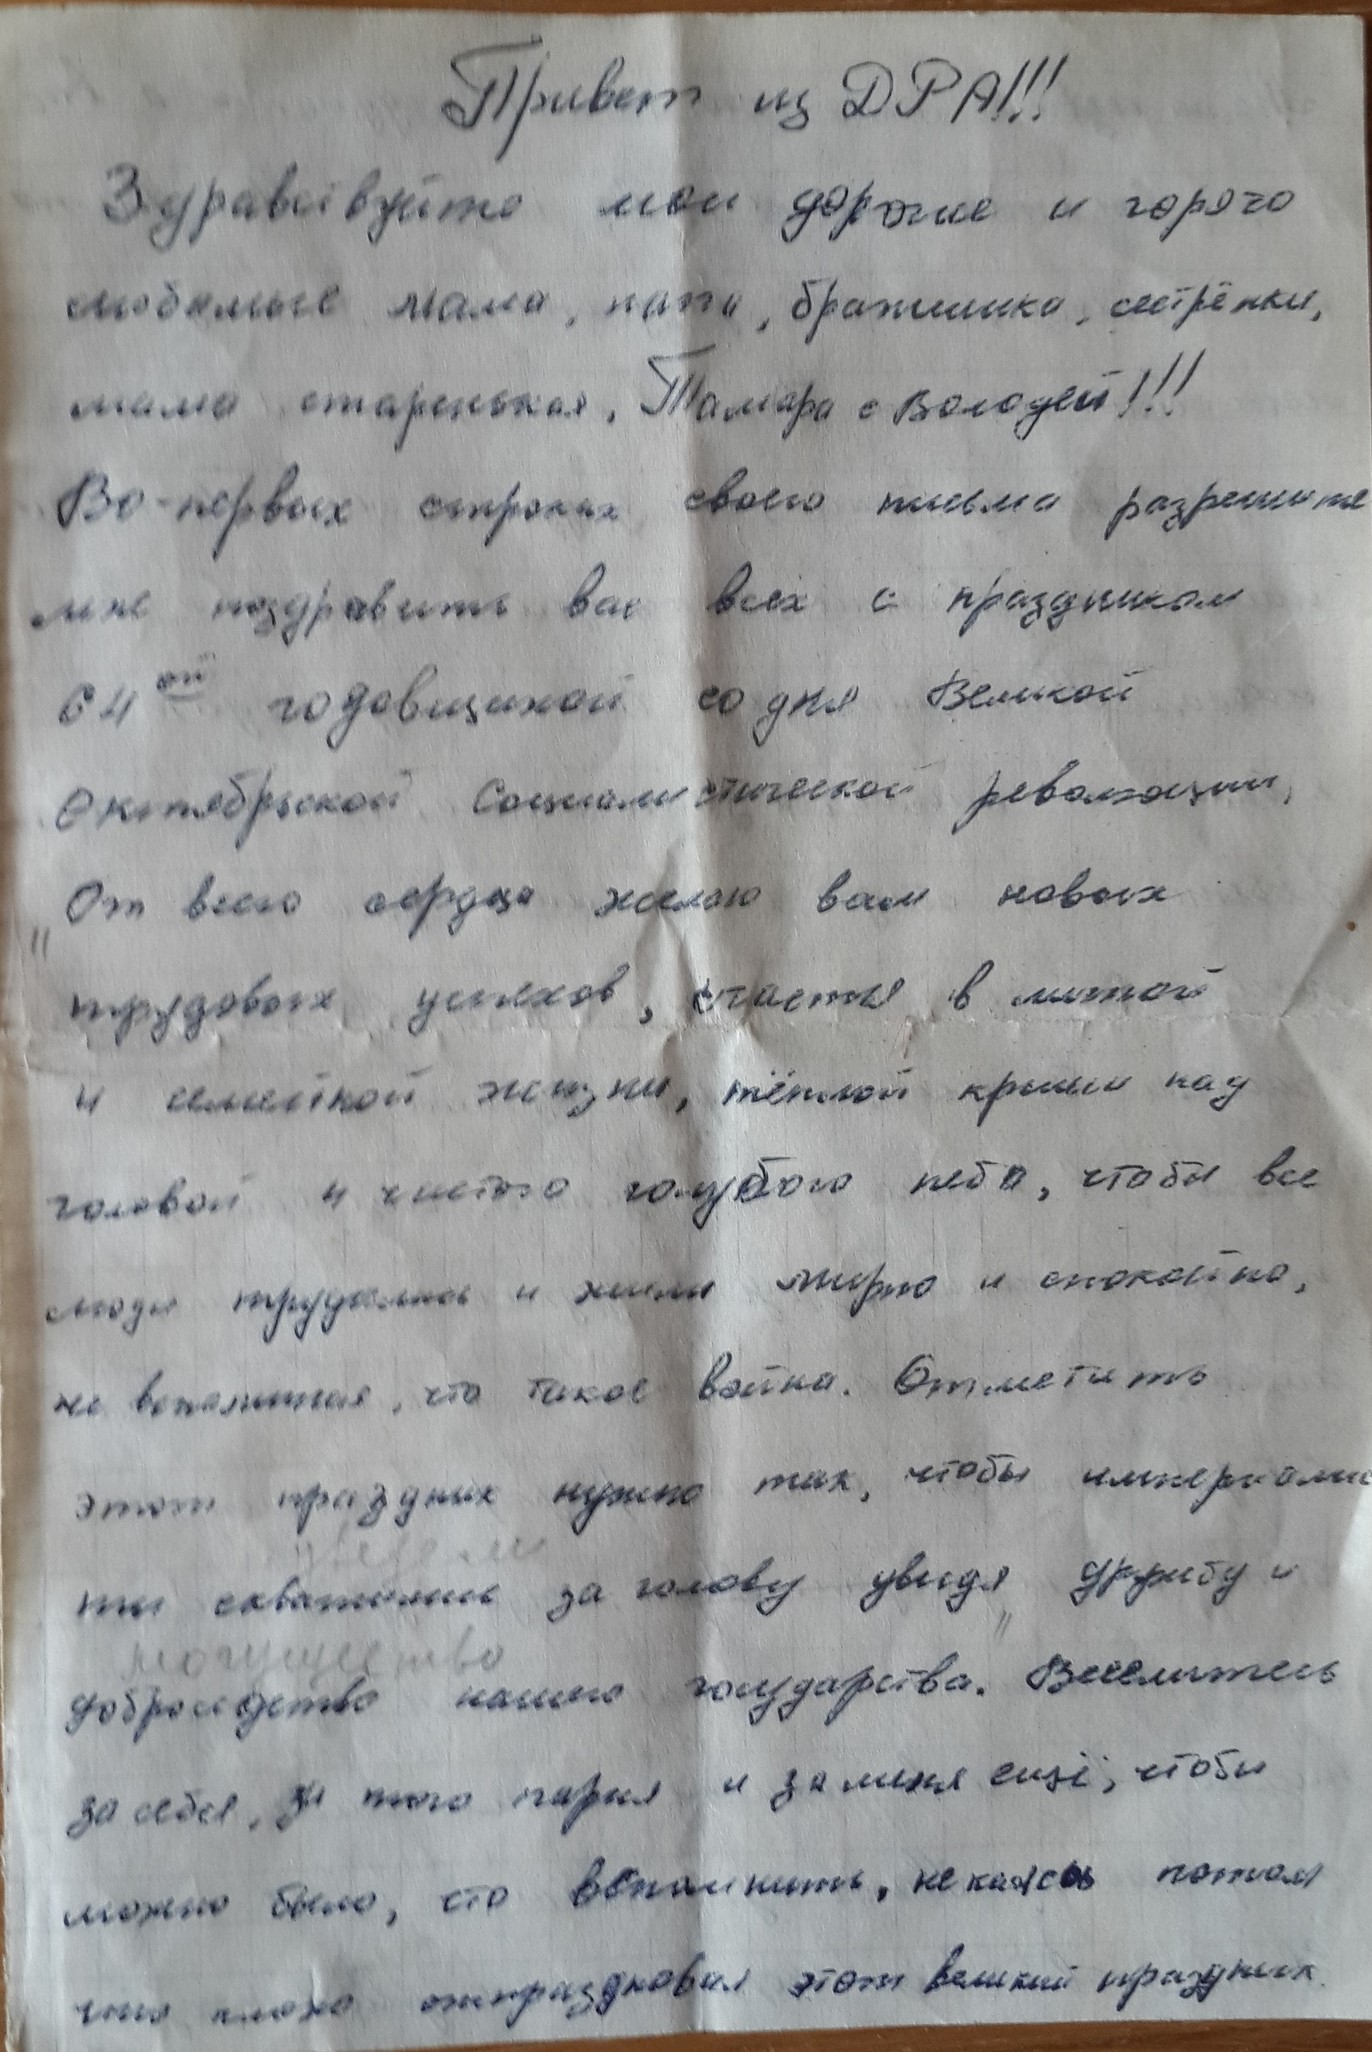 Привет из ДРА!!!
Здравствуйте мои дорогие и горячо
любимые мама, папа, братишка, сестрёнки,
мама старенькая, Тамара с Володей!!!
Во-первых строках своего письма разрешите
мне поздравить вас всех с праздником
64ой годовщиной со дня Великой
Октябрьской Социалистической революции,
От всего сердца желаю вам новых
трудовых успехов, счастья в личной
и семейной жизни, тёплой крыши над
головой и чистого голубого неба, чтобы все
люди трудились и жили мирно и спокойно,
не вспоминая, что такое война. Отметить
этот праздник нужно так, чтобы империалис
ты схватились за голову увидя дружбу и
могущество
добрососедство нашего государства. Веселитесь
за себя, за того парня и за меня ещё, чтобы
можно было, что вспомнить, не каясь потом
что плохо отпраздновал этот великий праздник.